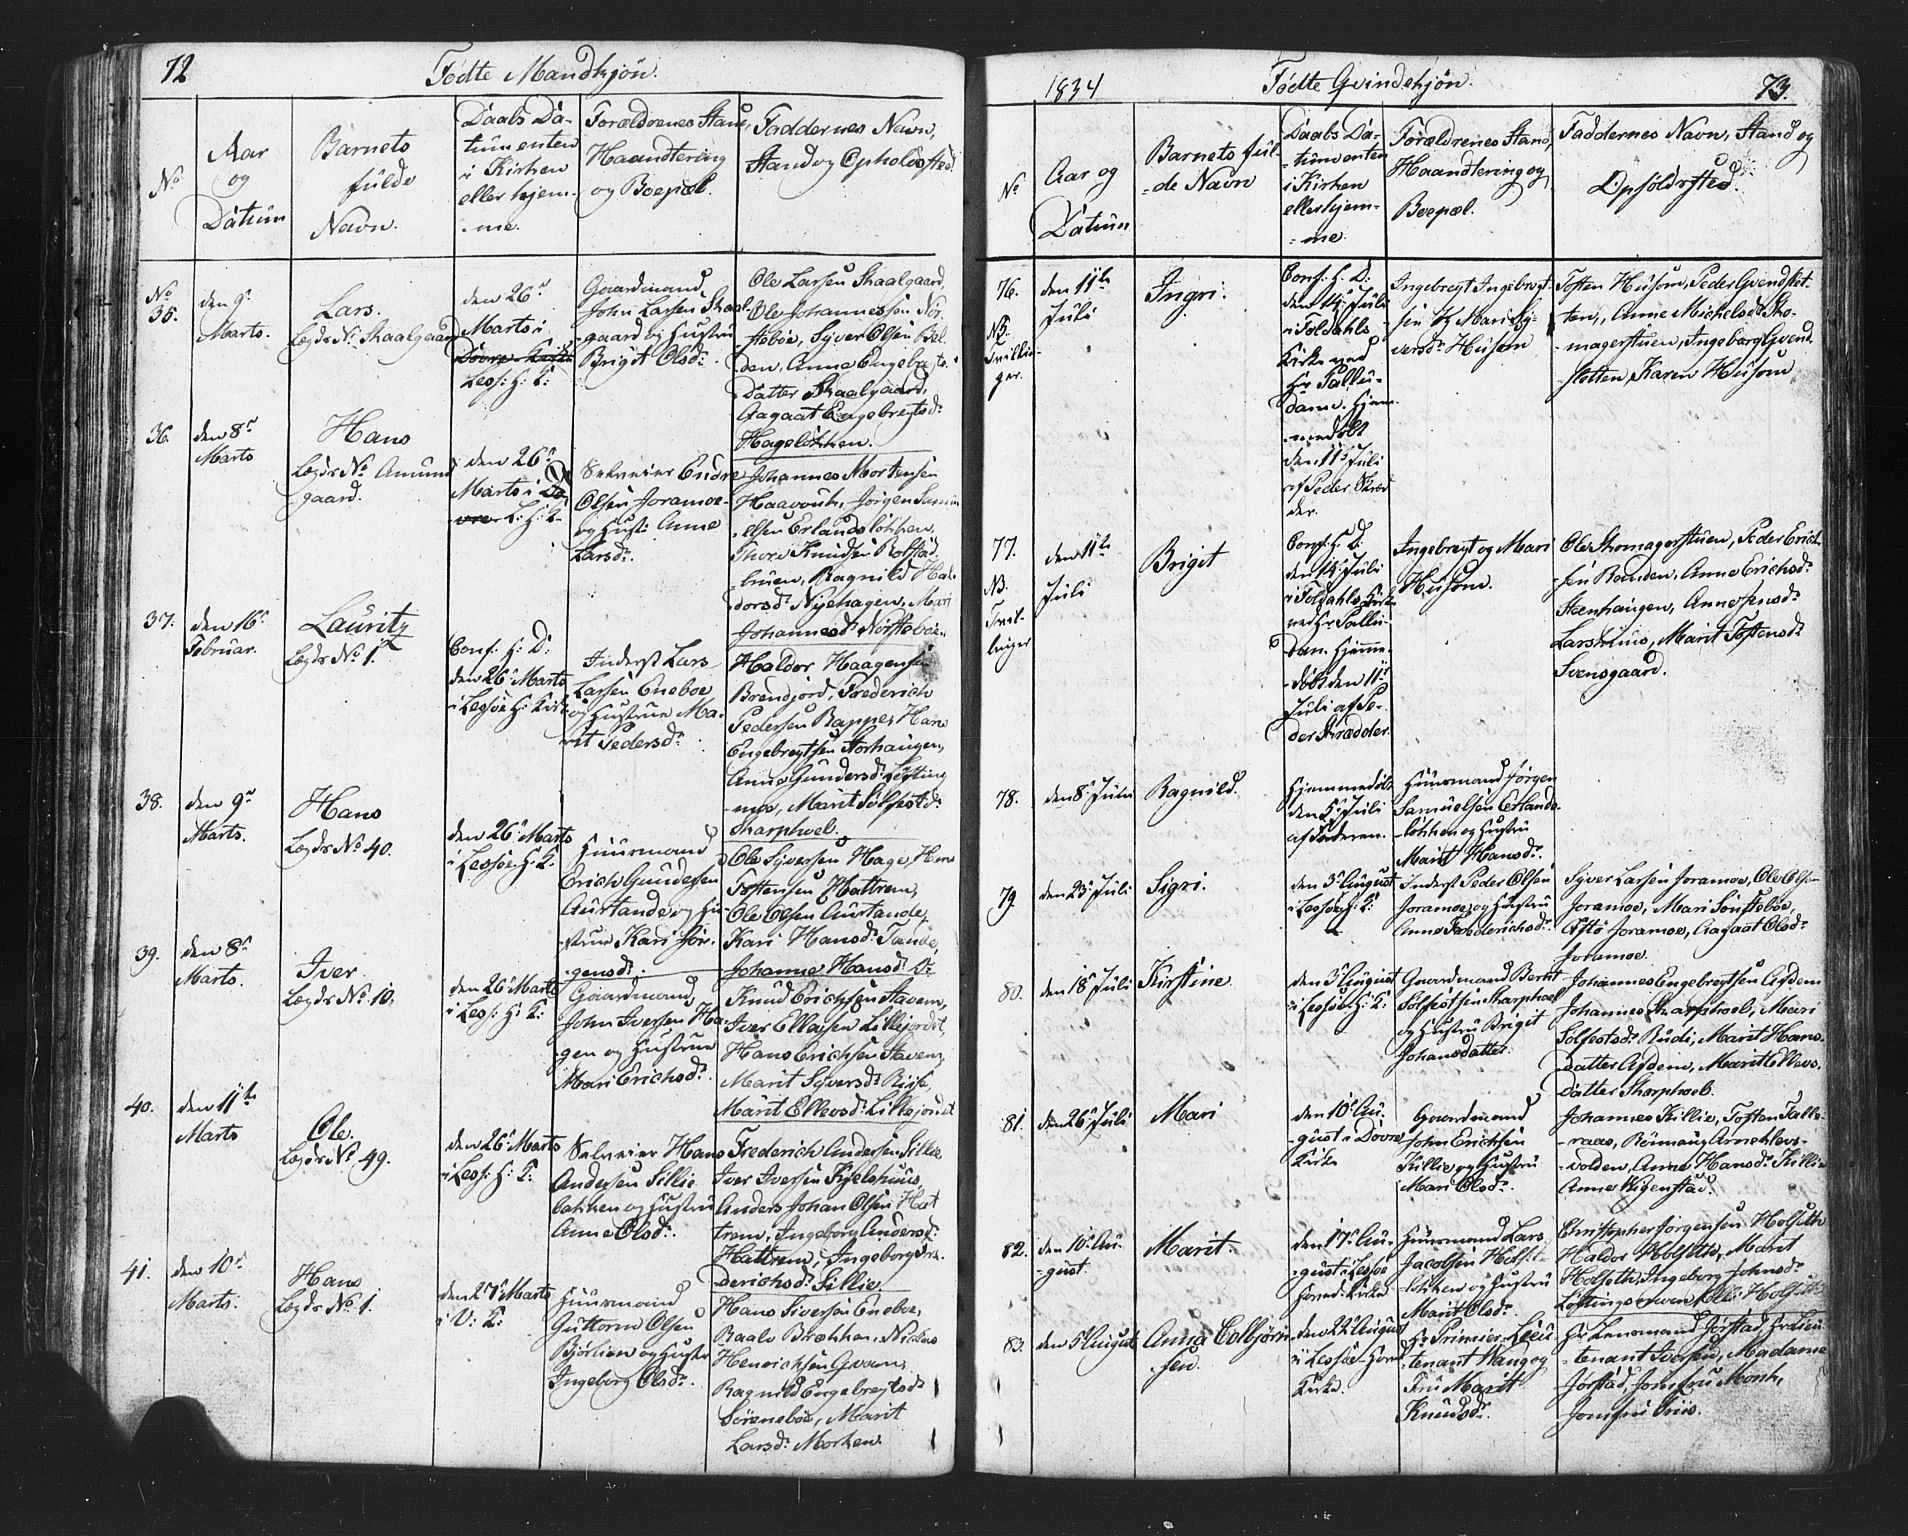 72
Fødte Mandkjøn.
No
Aar
og
Datum
Barnets
fulde
Navn.
Daabs Da-
tum enten
i Kirken
eller hjem-
-me.
Forældrenes Stand,
Haandtering
og Boepæl.
Faddernes Navn,
Stand og Opholdssted.
No
35.
den 9de
Marts.
Lars.
Lægds No Skaalgaard
den 26de
Marts i
Dovre Kirke
Less: H: K:
Gaardmand
John Larsen Skaal-
gaard og Hustru
Brigit Olsdr.
Ole Larsen Skaalgaard,
Ole Johannessen Nør-
stebøe, Syver Olsen Bel-
den, Anne Engebregts-
datter Skaalgaard,
Aagaat Engebregtsdr
Hageløkken.
36.
den 8de
Marts
Hans
Lægds No Amund
gaard.
den 26de
Marts i Do
vre L: H: K.
Selveier Endre
Olsen Joramoe
og Hust: Anne
Larsdr.
Johannes Mortensen
Haavouk, Jørgen Samu-
elsen Erlandsløkken,
Thore Knudsen Rolstad
Ragnild Hal-
dorsdr Nyehagen, Mari
Johannesdr Nørstebøe.
37.
den 16de
Februar.
Lauritz
Lægds No 1.
Conf: H: D:
den 26de Marts
i Lessøe H: Kirke
Inderst Lars
Larsen Eneboe
og Hustrue Ma-
rit Pedersdr
Haldor Haagensen
Brendjord, Frederich
Pedersen Rappe, Hans
Engebregtsen Storhaugen,
Anne Gundersdr Løfting
-moe, Marit Solfestdr
Skarphoel.
38.
den 9de
Marts.
Hans
Lægds No 40.
den 26de Marts
i Lessøe H: K:
Huusmand
Erich Gundersen
Aurlande og Hu-
strue Kari Jør-
gensdr.
Ole Syversen Hage, Hans
Tostensen Hattrem,
Ole Olsen Aurstande,
Kari Hansdr Tande,
Johanne Hansdr
39.
den 8de
Marts.
Iver
Lægds No 10.
den 26de Marts
i Less: H: K:
Gaardmand
John Iversen Ha-
gen og Hustrue
Mari Erichsdr.
Knud Erichsen Stavem,
Iver Ellevsen Lillejordet,
Hans Erichsen Stavem,
Marit Syversdr Riise,
Marit Ellevsdr Lillejordet
40.
den 11te
Marts
Ole.
Lægds No 49.
den 26de Marts
i Less: H: K:
Selveier Hans
Andersen Lillie-
bakken og Hustru
Anne Olsdr.
Frederich Andersen Lillie
Iver Iversen Kjelshuus,
Anders Johan Olsen Hat
trem, Ingeborg Andersdr
Hattrem, Ingeborg Fre-
derichsdr Lillie
41.
den 10de
Marts.
Hans
Lægds No 1.
den 27de Marts
i V: K:
Huusmand
Guttorm Olsen
Bjørlien og Hustr
Ingeborg Olsdr.
Hans Siversen Eneboe,
Henrichsen
Ragnild Engebregtsdr
Sørenebøe, Marit
Larsdr Morken.
1834
Fødte Qvindekjøn.
73.
No
Aar og
Datum
Barnets ful-
-de Navn
Daabs Da-
-tum enten
i Kirken
eller hjem-
-me.
Forældrenes Stand,
Haandtering og
Boepæl.
Faddernes Navn, Stand og
Opholdssted.
76.
NB.
Tvillin-
ger.
den 11te
Juli
Ingri.
Conf: H: D:
den 14de Juli
i Toldahls
Kirke ved
Hr Pallu-
dam. Hjem-
-medøbt
den 11te Juli
af Peder Skræd
der.
Ingebregt Ingebregt-
sen og Mari Sy-
versdr Husom
Tosten Husom, Peder Qvendslet-
ten, Anne Michelsdr Sko-
magerstuen, Ingeborg Qvend
sletten, Karen Husom
77.
NB.
Tvil-
linger
den 11te
Juli
Brigit
Conf: H: D:
den 14de Juli
i Toldahls Kirke
ved Hr Pallu-
dan. Hjemme-
-døbt den 11te
Juli af Pe-
der Skrædder.
Ingebregt og Mari
Husom.
Ole Skomagerstuen, Peder Erich-
sen Randen, Anne Erichsdr
Steenhaugen, Anne Jensdr
Larshuus, Marit Tostensdr
Svensgaard.
78.
den 8de Juli
Ragnild.
Hjemmedøbt
den Juli
af Faderen.
Huusmand Jørgen
Samuelsen Erlands-
løkken og Hustru
Marit Hansdr.
79
den 23de Juli
Sigri.
den 3de August
i Lessøe H: K:
Inderst Peder Olsen
Joramoe og Hustru
Anne Frederichsdr.
Syver Larsen Joramoe, Ole Olsen
Joramoe, Mari Sønstebøe,
Joramoe, Aagaat Olsdr
Joramoe.
80.
den 18de Juli
Kirstine
den 3de August
i Lessøe H: K:
Gaardmand Bernt
Solfestsen Skarphoel
og Hustru Brigit
Johansdatter.
Johannes Engebregtsen Asdem
Johannes Skarphoel, Mari
Solfestsdr Rudi, Marit Hans-
datter Asdem, Marit Ellevs-
datter Skarphoel.
81.
den 26de Juli
Mari
den 10de Au-
-gust i Dovre
Kirke
Gaardmand
John Erichsen
Killie og Hustru
Mari Olsdr.
Johannes Killie, Tosten Talle-
-raas,
-volden, Anne Hansdr Killie
Anne Vigenstad.
82.
den 10de Au-
-gust.
Marit.
den 17de Au-
-gust i Lessøe
Hoved-Kirke
Huusmand Lars
Jacobsen Holset-
løkken og Hustru
Marit Olsdr.
Christopher Jørgensen Holseth
Haldor Holseth, Marit
Holseth, Ingeborg Johnsdr
Holseth
83.
den 5te August
Anna Colbjørn-
sen.
den 24de August
i Lessøe Hoved
Kirke.
Hr Primier-Lieu-
-tenant Haug og
Fru Marit
Knudsdr.
Hr Lensmand Jørstad, Hr Lieu-
-tenant Iversen, Madame
Jørstad, Jomfru Monk,
Jomfru Friis.